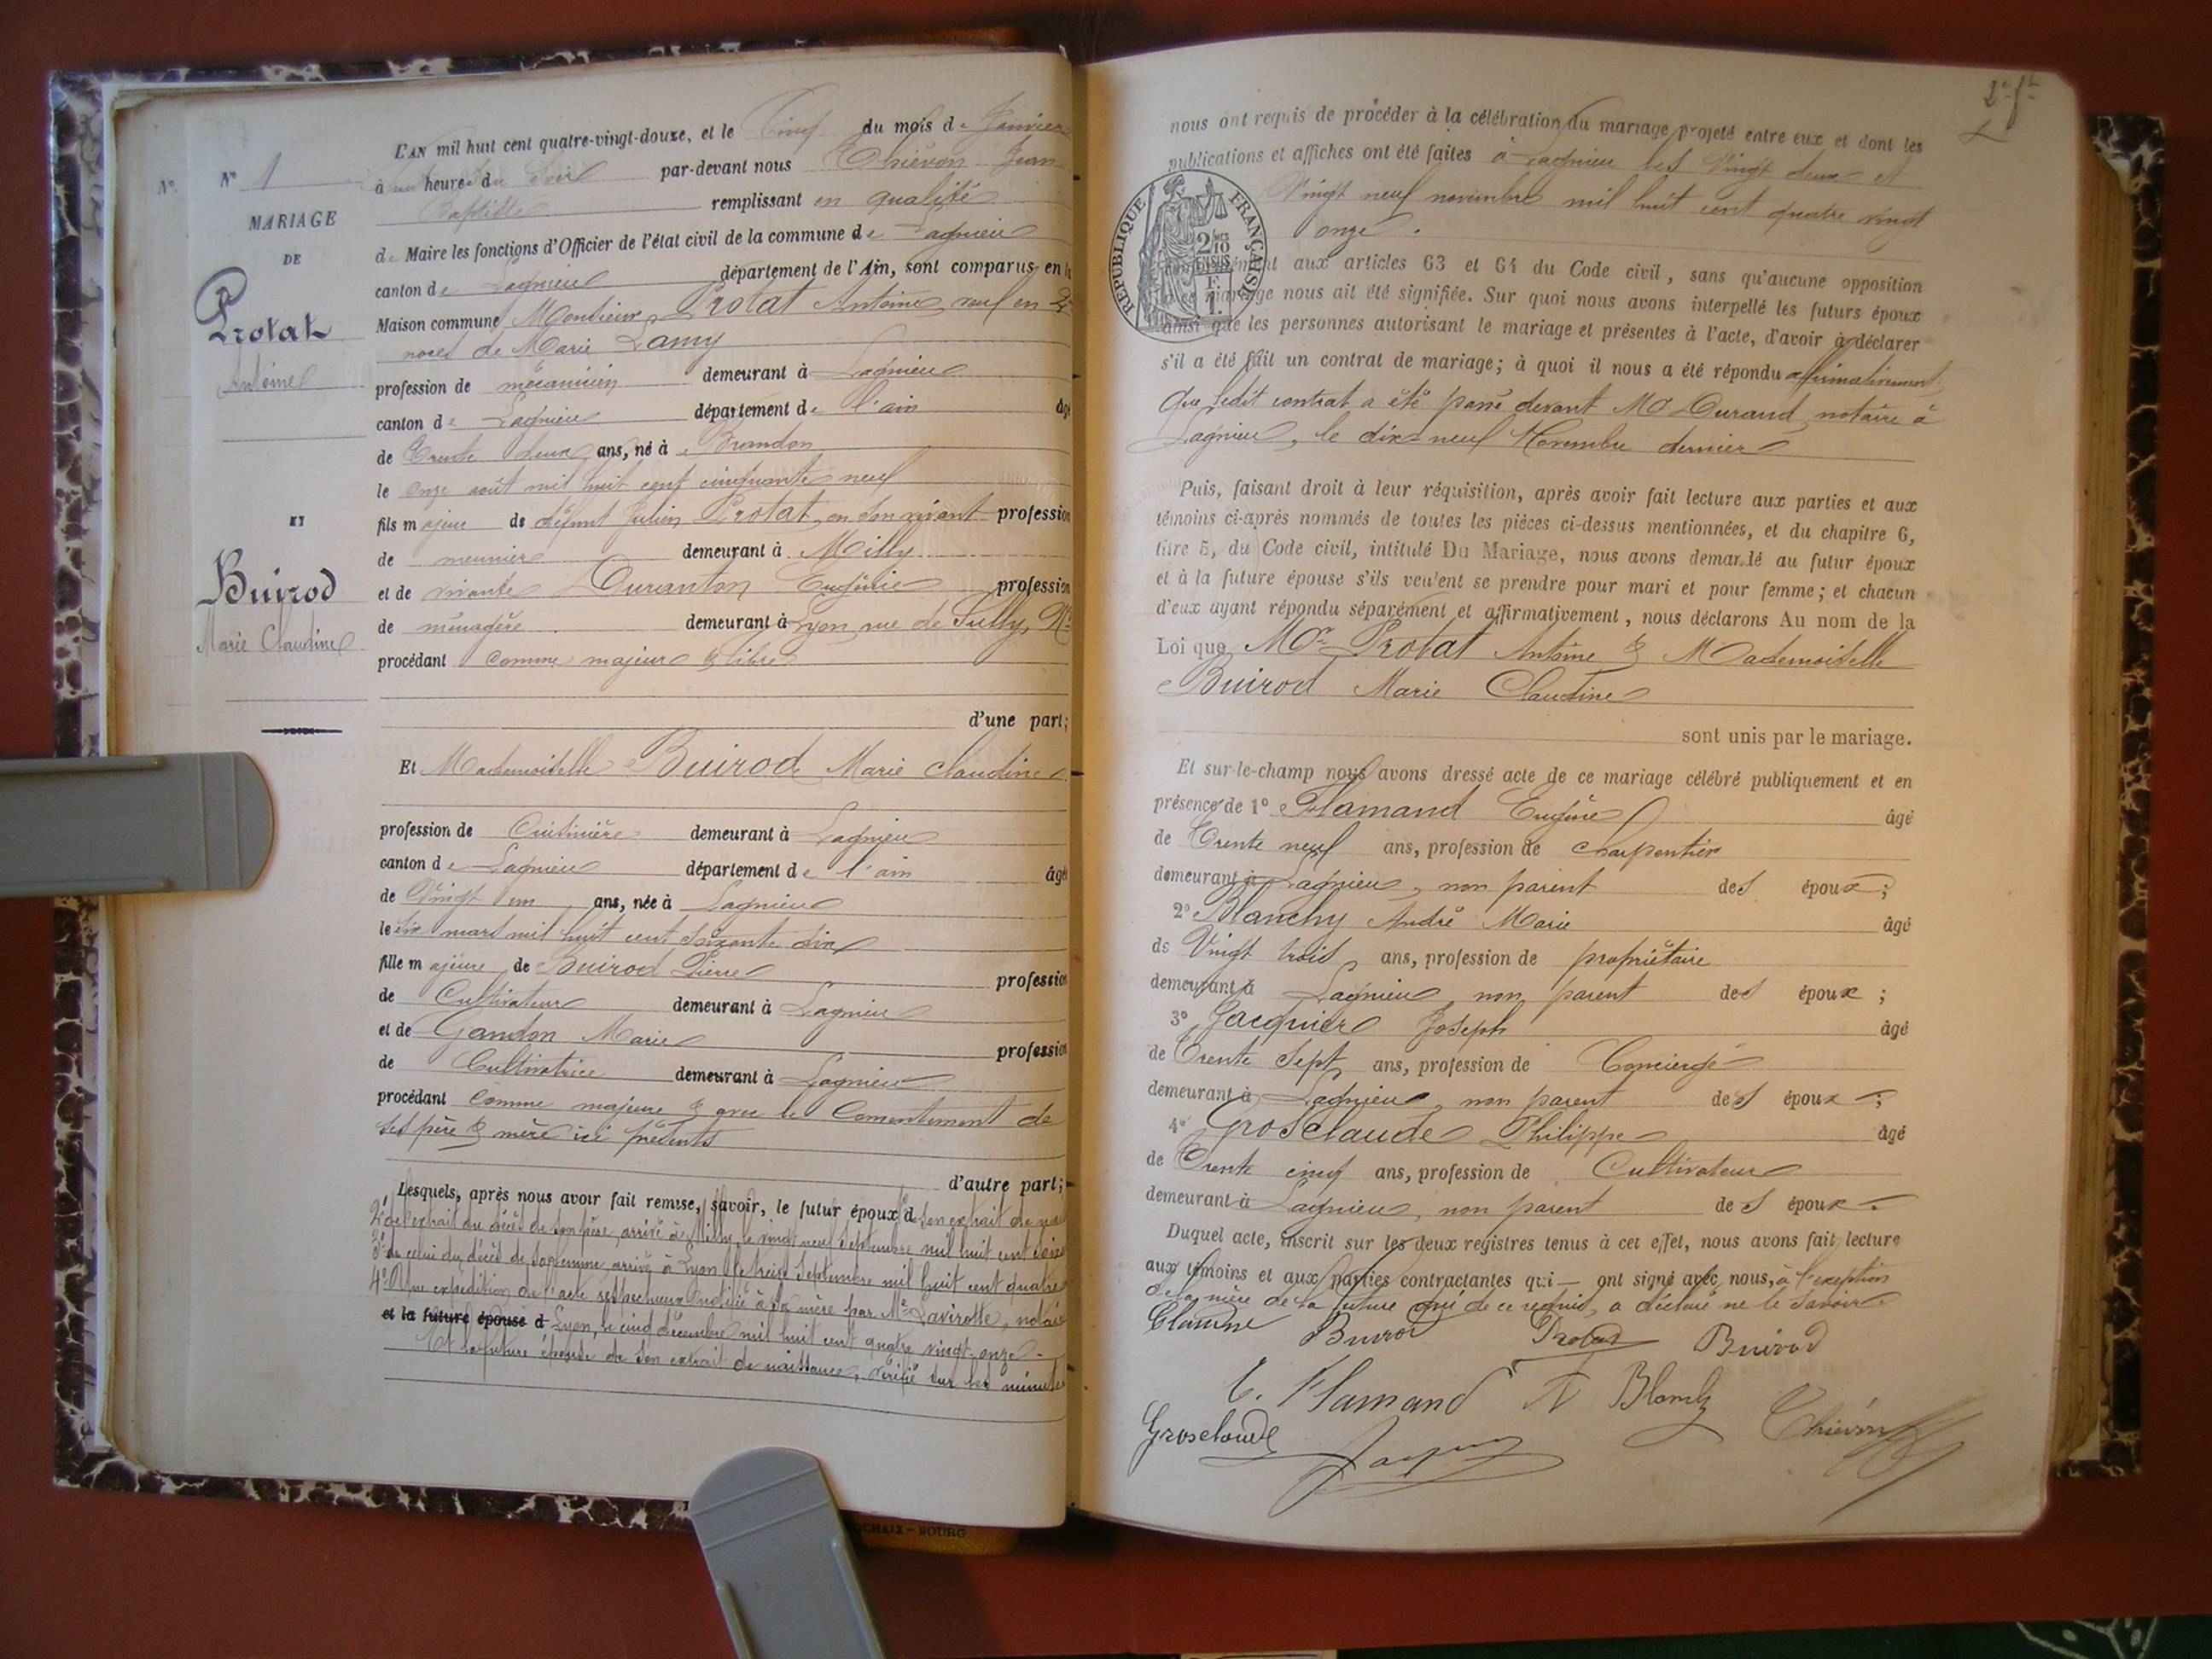 Nº
Nº 1
MARIAGE
DE
Protat
Antoine
ET
Buirod
Marie Claudine
L'AN mil huit cent quatre-vingt-douze, et le Cinq du mois de Janvier
à huit heures du soir par-devant nous Chiévon Jean
Baptiste remplissant en qualité
de Maire les fonctions d'Officier de l'état civil de la commune de Lagnieu
canton de Lagnieu département de l'Ain, sont comparus en la
Maison commune Monsieur Protat Antoine, veuf en 2e
noces de Marie Lamy
profession de mécanicien demeurant à Lagnieu
canton de Lagnieu département de l'ain âgé
de Trente deux ans, né à Brandon
le onze août mil huit cent cinquante neuf
fils majeur de défunt Julien Protat, en son vivant profession
de meunier demeurant à Milly
et de vivante Duranton Eugénie profession
de ménagère demeurant à Lyon, rue de Sully, Nº
procédant comme majeur & libre
d'une part;
Et Mademoiselle Buirod Marie Claudine
profession de Cuisinière demeurant à Lagnieu
canton de Lagnieu département de l'ain âgée
de Vingt un ans, née à Lagnieu
le six mars mil huit cent soixante dix
fille majeure de Buirod Pierre profession
de Cultivateur demeurant à Lagnieu
et de Gandon Marie profession
de Cultivatrice demeurant à Lagnieu
procédant comme majeure & avec le Consentement de
ses père & mère ici présents
d'autre part;
Lesquels, après nous avoir fait remise, savoir, le futur époux 1º de son extrait de nais
2º de l'extrait du décès de son père, arrivé à Milly, le vingt neuf Septembre mil huit cent soix
3º de celui du décès de sa femme, arrivé à Lyon le treize Septembre mil huit cent quatre
4º Une expédition de l'acte respectueux notifié à sa mère par Me Lavirotte, notaire
et la future épouse d Lyon, le cinq décembre mil huit cent quatre vingt-onze.
Et la future épouse de son extrait de naissance, vérifié sur les minutes
OCHAIX - BOURG
2e ft
nous ont requis de procéder à la célébration du mariage projeté entre eux et dont les
publications et affiches ont été faites à Lagnieu les Vingt deux et
Vingt neuf novembre mil huit cent quatre vingt
onze.
RÉPUBLIQUE FRANÇAISE
2/10 EN SUS
1 F.
conformément aux articles 63 et 64 du Code civil, sans qu'aucune opposition
à ce mariage nous ait été signifiée. Sur quoi nous avons interpellé les futurs époux
ainsi que les personnes autorisant le mariage et présentes à l'acte, d'avoir à déclarer
s'il a été fait un contrat de mariage; à quoi il nous a été répondu affirmativement,
que ledit contrat a été passé devant Me Durand, notaire à
Lagnieu, le dix-neuf Novembre dernier
Puis, faisant droit à leur réquisition, après avoir fait lecture aux parties et aux
témoins ci-après nommés de toutes les pièces ci-dessus mentionnées, et du chapitre 6,
titre 5, du Code civil, intitulé Du Mariage, nous avons demandé au futur époux
et à la future épouse s'ils veulent se prendre pour mari et pour femme; et chacun
d'eux ayant répondu séparément et affirmativement, nous déclarons Au nom de la
Loi que Mr Protat Antoine & Mademoiselle
Buirod Marie Claudine
sont unis par le mariage.
Et sur-le-champ nous avons dressé acte de ce mariage célébré publiquement et en
présence de 1º Flamand Eugène âgé
de Trente neuf ans, profession de charpentier
demeurant à Lagnieu, non parent des époux;
2º Blanchy André Marie âgé
de Vingt trois ans, profession de propriétaire
demeurant à Lagnieu, non parent des époux;
3º Jacquier Joseph âgé
de Trente sept ans, profession de Concierge
demeurant à Lagnieu, non parent des époux;
4º Grosclaude Philippe âgé
de Trente cinq ans, profession de Cultivateur
demeurant à Lagnieu, non parent des époux.
Duquel acte, inscrit sur les deux registres tenus à cet effet, nous avons fait lecture
aux témoins et aux parties contractantes qui ont signé avec nous, à l'exception
de la mère de la future qui de ce requis, a déclaré ne le savoir.
Claudine Buirod Protat Buirod
E. Flamand A Blanchy Chiévon
Grosclaude Jacquier